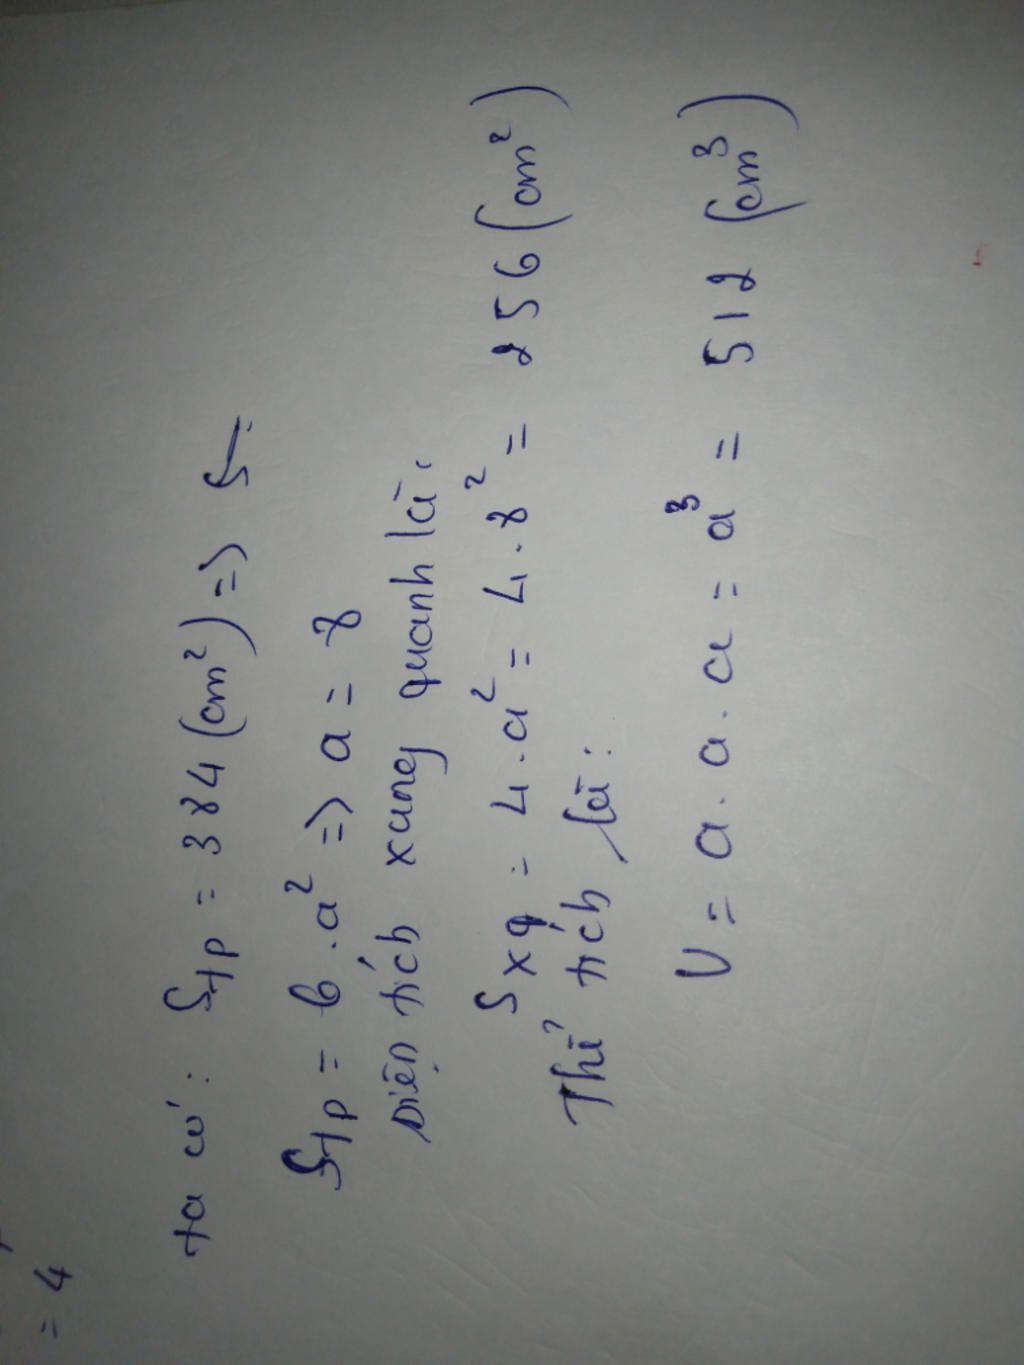 = 4
ta có: Stp = 384 (cm²) =>
Stp = 6 . a² => a = 8
Diện tích xang quanh là:
Sxq = 4 . a² = 4 . 8² = 256 (cm²)
Thể tích là:
V = a . a . a = a³ = 512 (cm³)